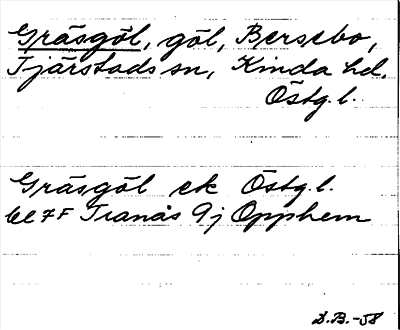 Gräsgöl, göl, Bersebo,
Tjärstads sn, Kinda hd,
Östg.l.
Gräsgöl ek Östg.l.
bl 7F Tranås 9j Opphem
D.B.-58